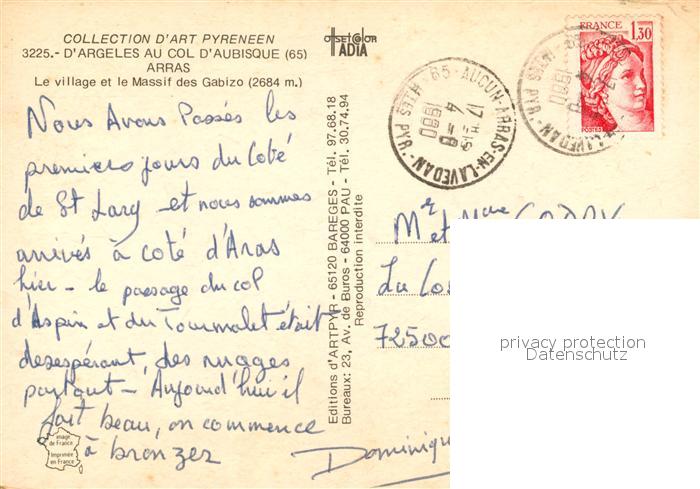 COLLECTION D'ART PYRENEEN
3225.- D'ARGELES AU COL D'AUBISQUE (65)
ARRAS
Le village et le Massif des Gabizo (2684 m.)
Nous Avons Passés les
premiers jours du Coté
de St Lary - et nous sommes
arrivés à coté d'Aras
hier - le passage du col
d'Aspin et du Tourmalet était
desespérant, des nuages
partout - Aujourd'hui il
fait beau, on commence
à bronzer
Dominiqu
image
de France
Imprimée
en France
offset color
TADIA
Editions d'ARTPYR - 65120 BAREGES - Tél. 97.68.18
Bureaux: 23, Av. de Buros - 64000 PAU - Tél. 30.74.94
Reproduction interdite
65 - AUCUN-ARRAS-EN-LAVEDAN - HTES PYR.
17 H
4 - 8
1980
FRANCE
1,30
POSTES
HTES PYR. LAVEDAN
1980
Mr et Mme
La
72500
privacy protection
Datenschutz